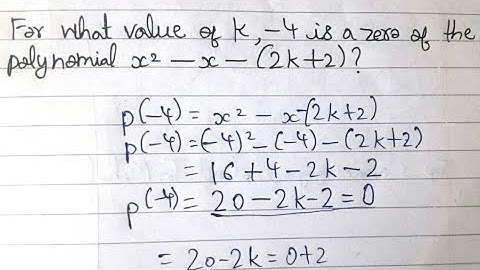 For what value of k, -4 is a zero of the
polynomial x² - x - (2k+2)?
p(-4) = x² - x-(2k+2)
p(-4) = (-4)² - (-4) - (2k+2)
= 16 + 4 - 2k - 2
p(-4) = 20 - 2k - 2 = 0
= 20 - 2k = 0 + 2